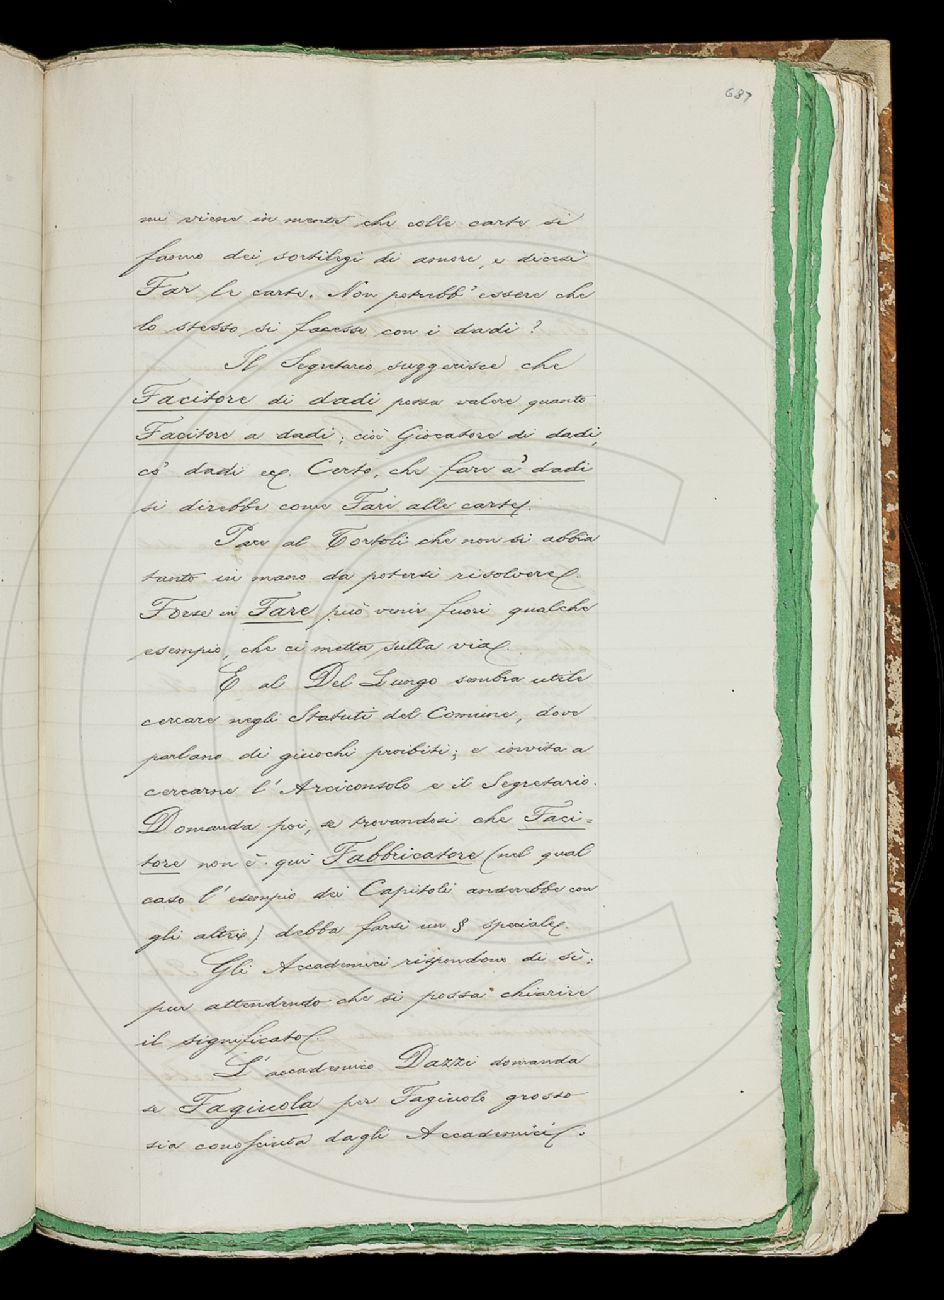 687
mi viene in mente che colle carte si
fanno dei sortilegi di amore, e dicesi
Far le carte. Non potrebb' essere che
lo stesso si facesse con i dadi?
Il Segretario suggerisce che
Facitore di dadi possa valere quanto
Facitore a dadi; cioè Giocatore di dadi,
co' dadi ec. Certo, che fare a' dadi
si direbbe come Fare alle carte.
Pare al Tortoli che non si abbia
tanto in mano da potersi risolvere.
Forse in Fare può venir fuori qualche
esempio, che ci metta sulla via.
E al Del Lungo sembra utile
cercare negli Statuti del Comune, dove
parlano di giuochi proibiti; e invita a
cercarne l'Arciconsolo e il Segretario.
Domanda poi, se trovandosi che Faci=
tore non è qui Fabbricatore (nel qual
caso l'esempio dei Capitoli anderebbe con
gli altri) debba farsi un § speciale.
Gli Accademici rispondono di sì;
pur attendendo che si possa chiarire
il significato.
L'accademico Dazzi domanda
se Fagiuola per Fagiuolo grosso
sia conosciuta dagli Accademici.